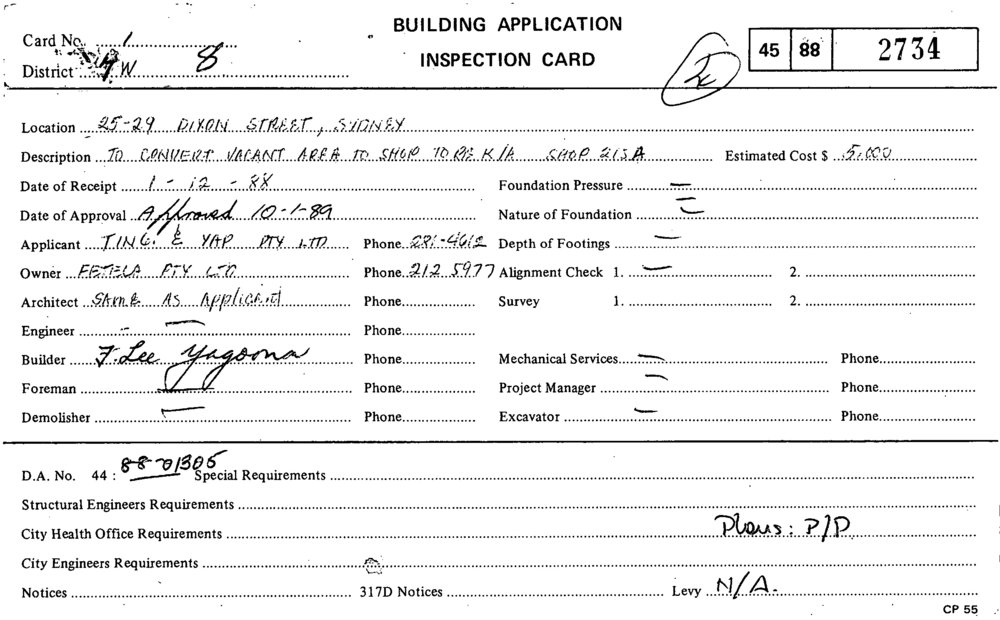 BUILDING APPLICATION
INSPECTION CARD
Card No. 1
District W 8
45 88 2734
Location 25-29 DIXON STREET, SYDNEY
Description TO CONVERT VACANT AREA TO SHOP TO BE K/A SHOP 213A Estimated Cost $ 5,000
Date of Receipt 1-12-88 Foundation Pressure —
Date of Approval Approved 10-1-89 Nature of Foundation —
Applicant TING & YAP PTY LTD Phone 281-4612 Depth of Footings —
Owner FETELA PTY LTD Phone 212 5977 Alignment Check 1. — 2.
Architect SAME AS Applicant Phone Survey 1. 2.
Engineer — Phone
Builder F. Lee Yagoona Phone Mechanical Services — Phone
Foreman Phone Project Manager — Phone
Demolisher — Phone Excavator — Phone
D.A. No. 44 : 88-01305 Special Requirements
Structural Engineers Requirements
City Health Office Requirements Plans: P/P
City Engineers Requirements
Notices 317D Notices Levy N/A.
CP 55